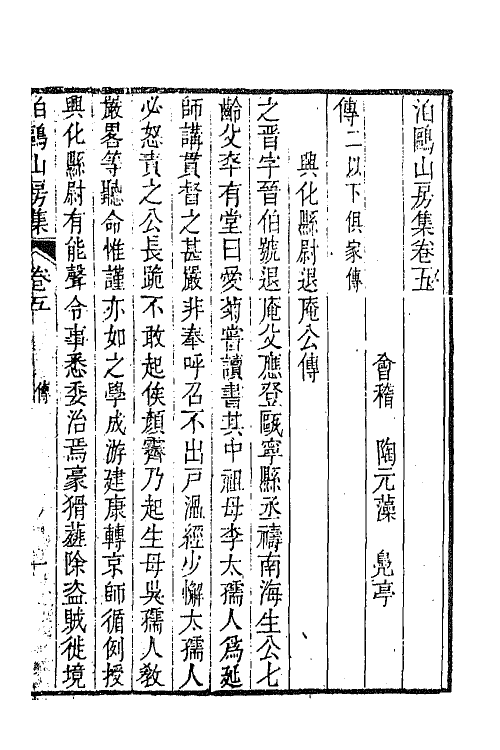 泊鷗山房集卷五
會稽 陶元藻 鳧亭
傳二以下俱家傳
興化縣尉退庵公傳
之晋字晉伯號退庵父應登甌寧縣丞禱南海生公七
齡父卒有堂曰愛菊嘗讀書其中祖母李太孺人爲延
師講貫督之甚嚴非奉呼召不出戸溫經少懈太孺人
必怒責之公長跪不敢起俟顏霽乃起生母吳孺人教
嚴畧等聽命惟謹亦如之學成游建康轉京師循例授
興化縣尉有能聲令事悉委治焉豪猾薙除盜賊徙境
泊鷗山房集 卷五 傳 一